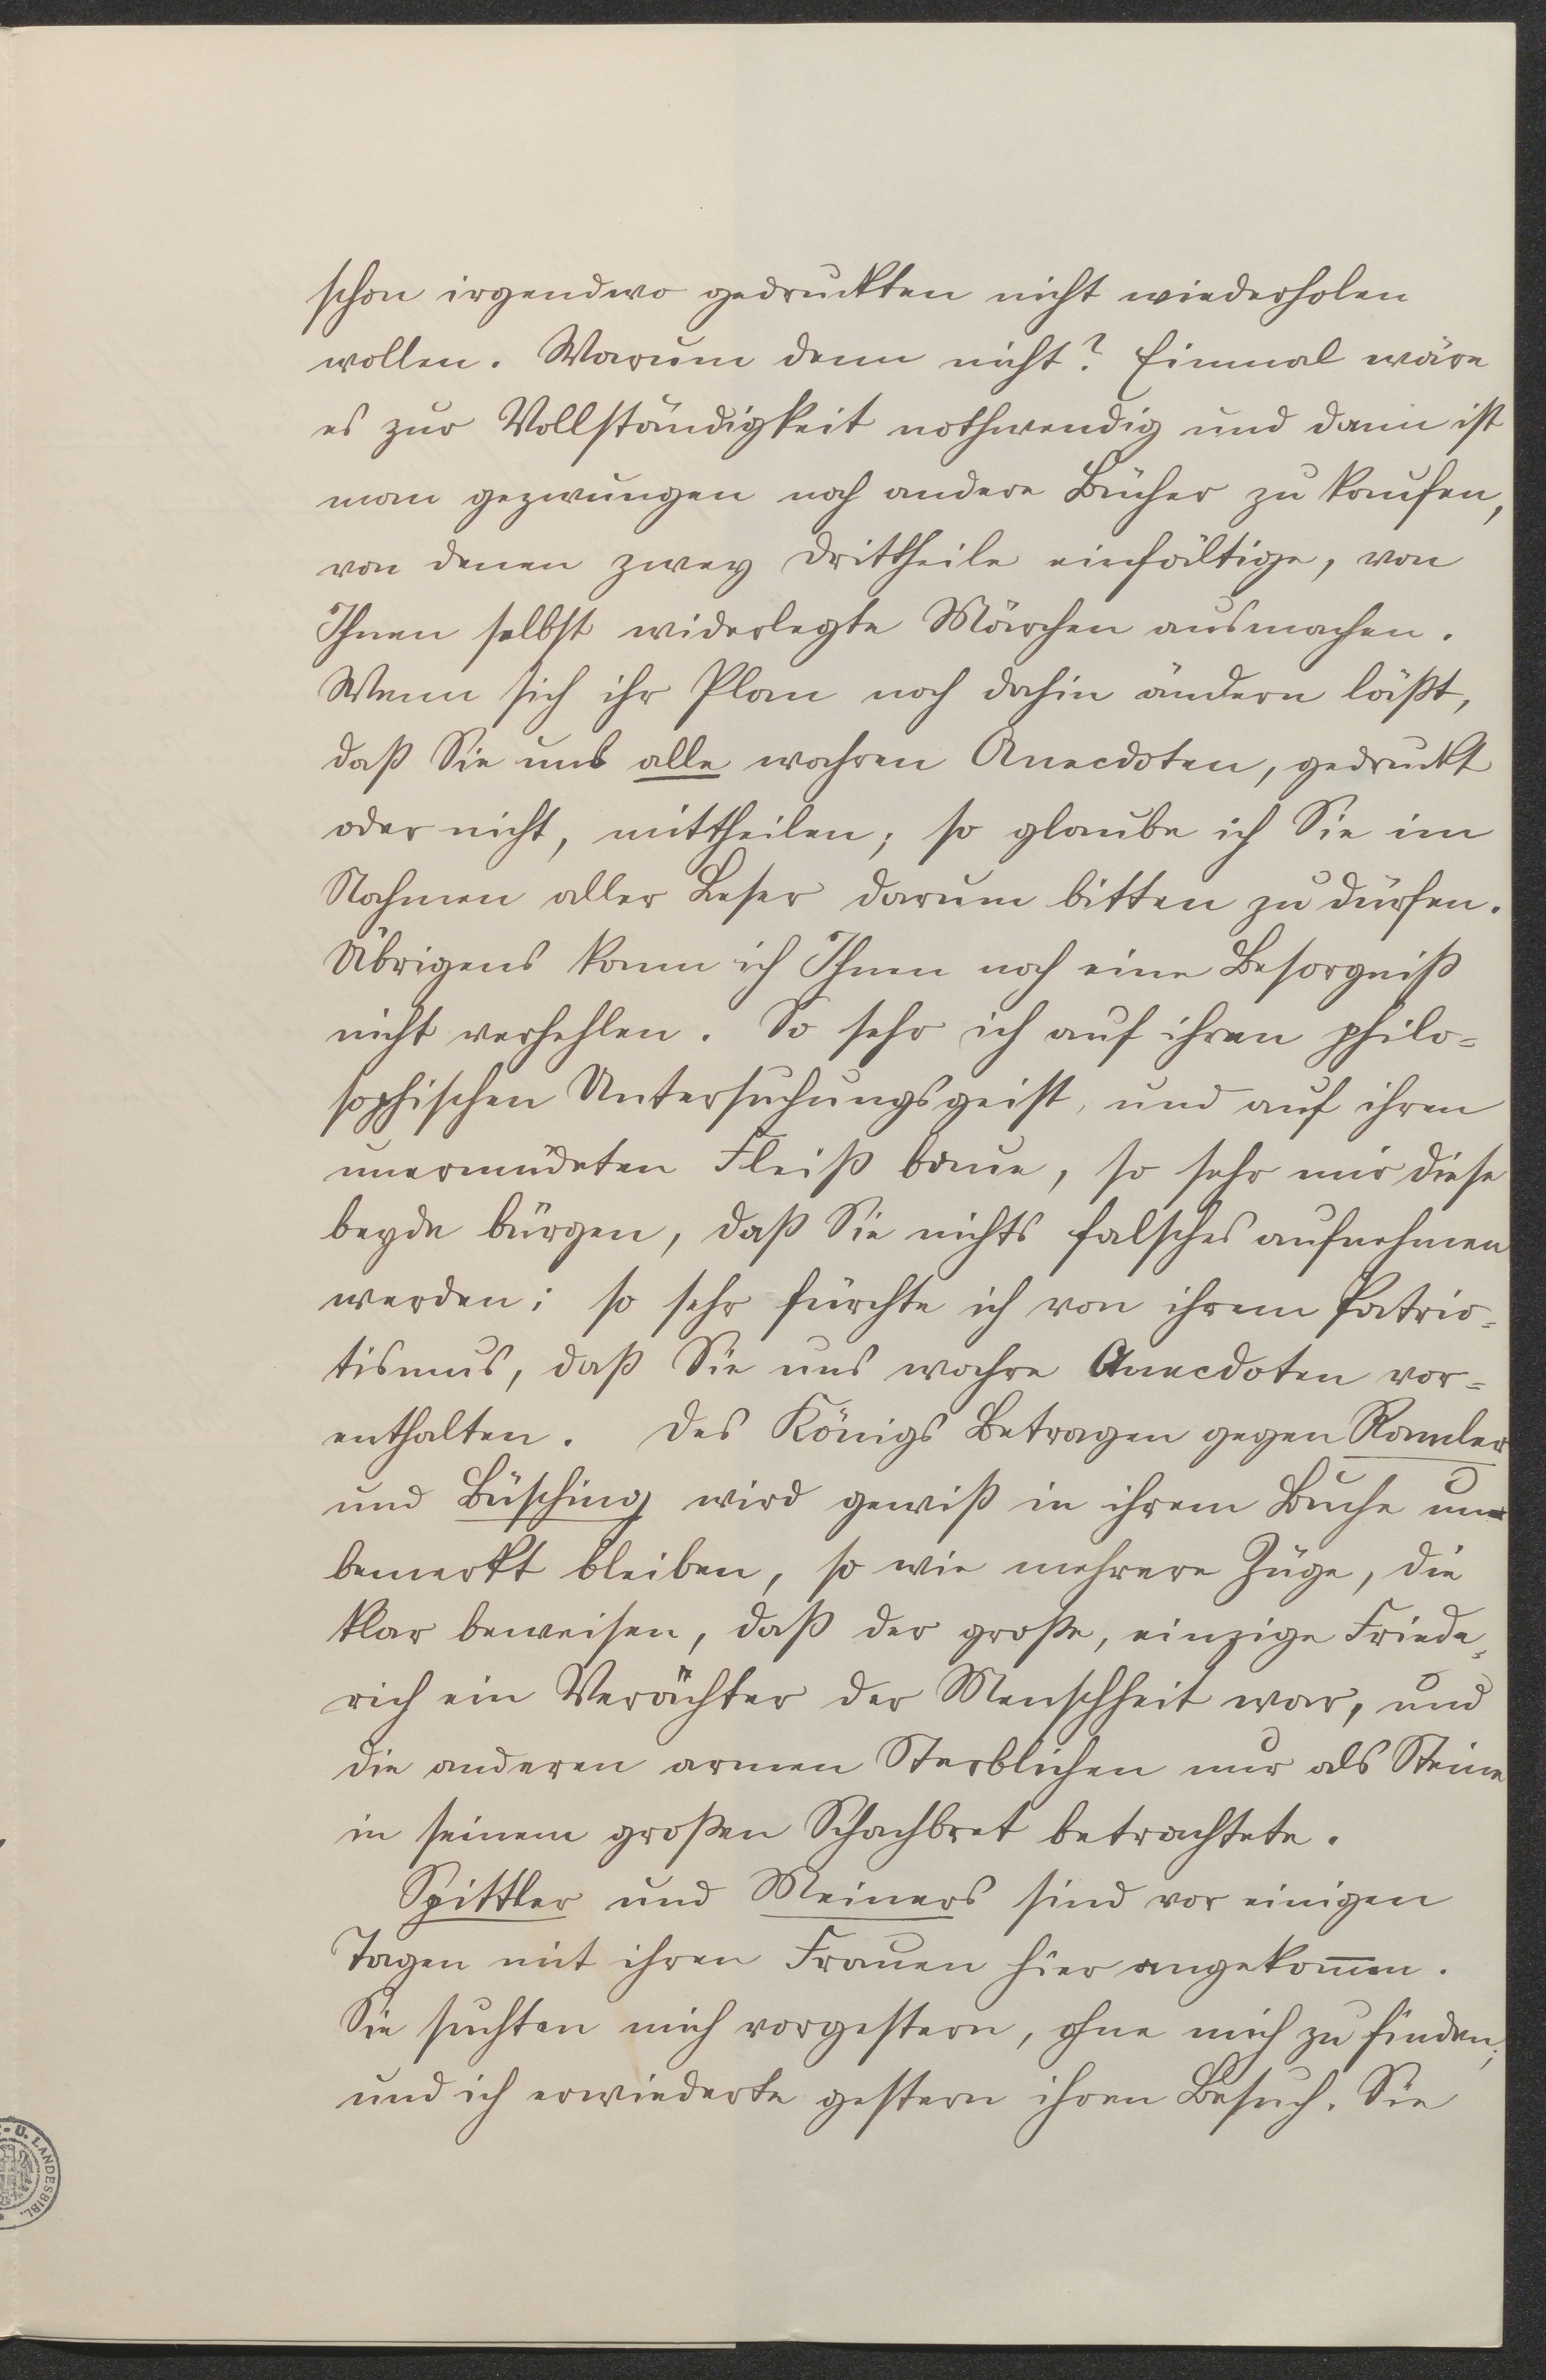 schon irgendwo gedruckten nicht wiederholen
wollen. Warum denn nicht? Einmal wäre
es zur Vollständigkeit nothwendig und dann ist
man gezwungen noch andere Bücher zu kaufen,
von denen zwey Drittheile einfältige, von
Ihnen selbst widerlegte Märchen ausmachen.
Wenn sich ihr Plan noch dahin ändern läßt,
daß Sie uns alle wahren Anecdoten, gedruckt
oder nicht, mittheilen; so glaube ich Sie im
Nahmen aller Leser darum bitten zu dürfen.
Übrigens kann ich Ihnen noch eine Besorgniß
nicht verhehlen. So sehr ich auf ihren philo=
sophischen Untersuchungsgeist, und auf ihren
unermüdeten Fleiß baue, so sehr mir diese
beyde bürgen, daß Sie nichts falsches aufnehmen
werden; so sehr fürchte ich von ihrem Patrio=
tismus, daß Sie uns wahre Anecdoten vor=
enthalten. Des Königs Betragen gegen Ramler
und Büsching wird gewiß in ihrem Buche un=
bemerkt bleiben, so wie mehrere Züge, die
klar beweisen, daß der große, einzige Friede=
rich ein Verächter der Menschheit war, und
die anderen armen Sterblichen nur als Steine
in seinem großen Schachbret betrachtete.
Spittler und Meiners sind vor einigen
Tagen mit ihren Frauen hier angekom̅en.
Sie suchten mich vorgestern, ohne mich zu finden;
und ich erwiederte gestern ihren Besuch. Sie
U. LANDESBIBL.